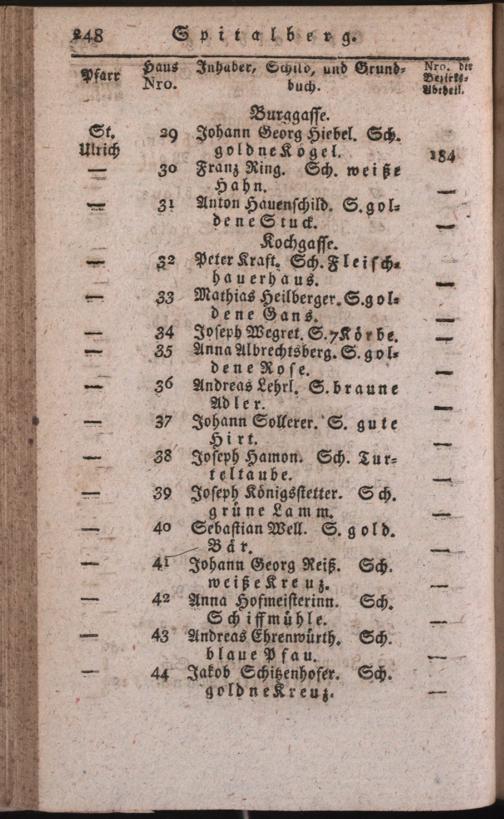 248 Spitalberg.
Pfarr Haus Nro. Inhaber, Schild, und Grund- buch. Nro. der Bezirks- Abtheil.
Burggasse.
St. Ulrich 29 Johann Georg Hiebel. Sch.
goldne Kögel. 184
— 30 Franz Ring. Sch. weiße
Hahn. —
— 31 Anton Hauenschild. S. gol-
dene Stuck. —
Kochgasse.
— 32 Peter Kraft. Sch. Fleisch-
hauerhaus. —
— 33 Mathias Heilberger. S. gol-
dene Gans. —
— 34 Joseph Wegret. S. 7 Körbe. —
— 35 Anna Albrechtsberg. S. gol-
dene Rose. —
— 36 Andreas Lehrl. S. braune
Adler. —
— 37 Johann Sollerer. S. gute
Hirt. —
— 38 Joseph Hamon. Sch. Tur-
teltaube. —
— 39 Joseph Königsstetter. Sch.
grüne Lamm. —
— 40 Sebastian Well. S. gold.
Bär. —
— 41 Johann Georg Reiß. Sch.
weiße Kreuz. —
— 42 Anna Hofmeisterinn. Sch.
Schiffmühle. —
— 43 Andreas Ehrenwürth. Sch.
blaue Pfau. —
— 44 Jakob Schitzenhofer. Sch.
goldne Kreuz. —